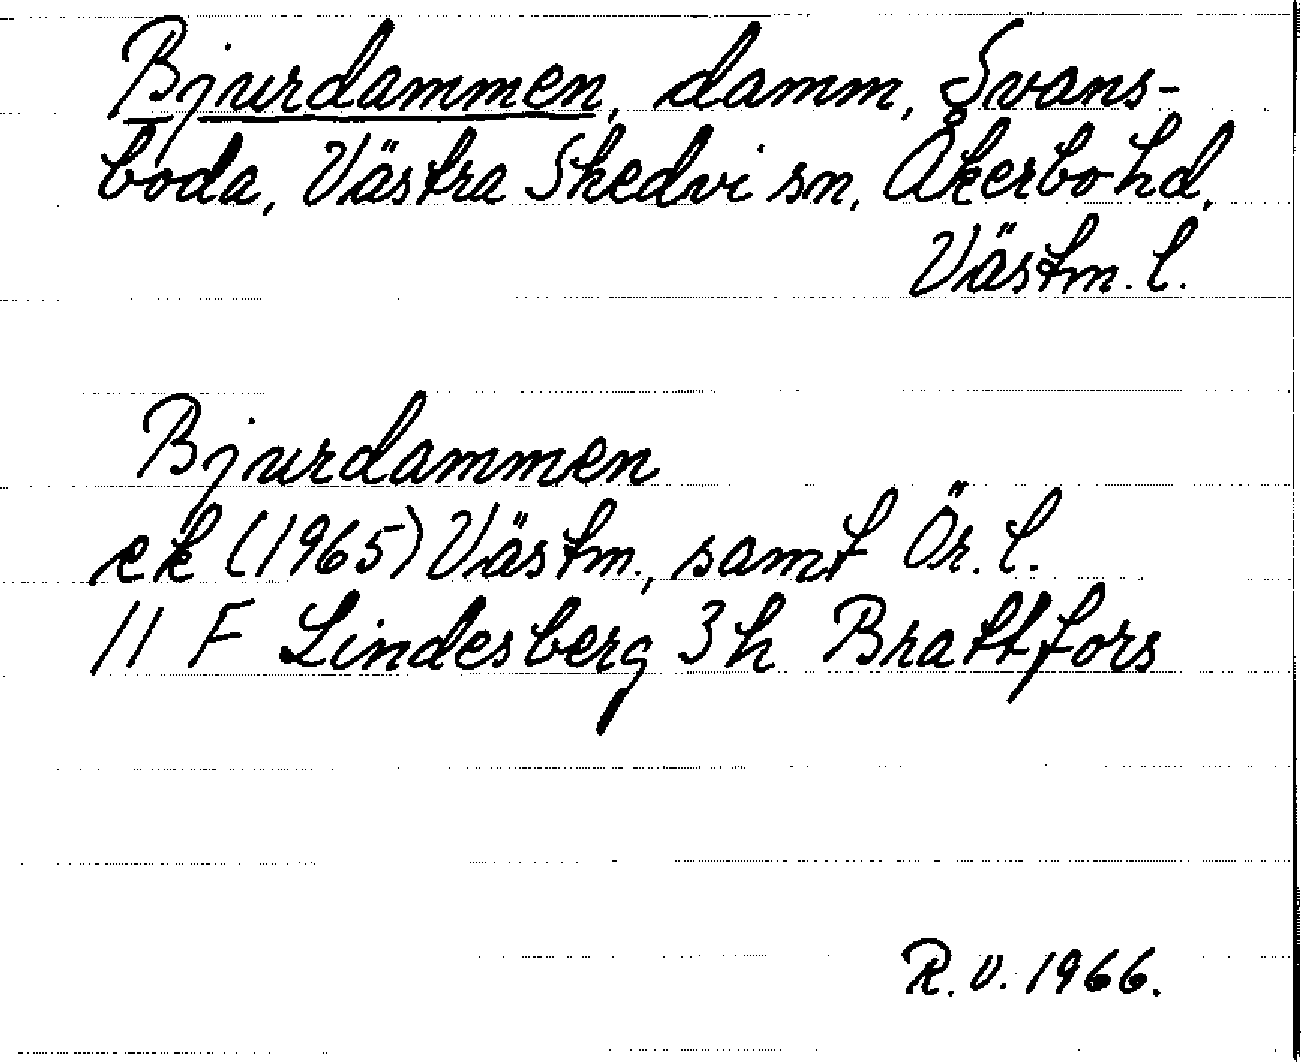 Bjurdammen, damm, Svans-
boda, Västra Skedvi sn, Åkerbo hd,
Västm. l.
Bjurdammen
ek (1965) Västm., samt Ör. l.
11 F Lindesberg 3h Brattfors
R.V. 1966.